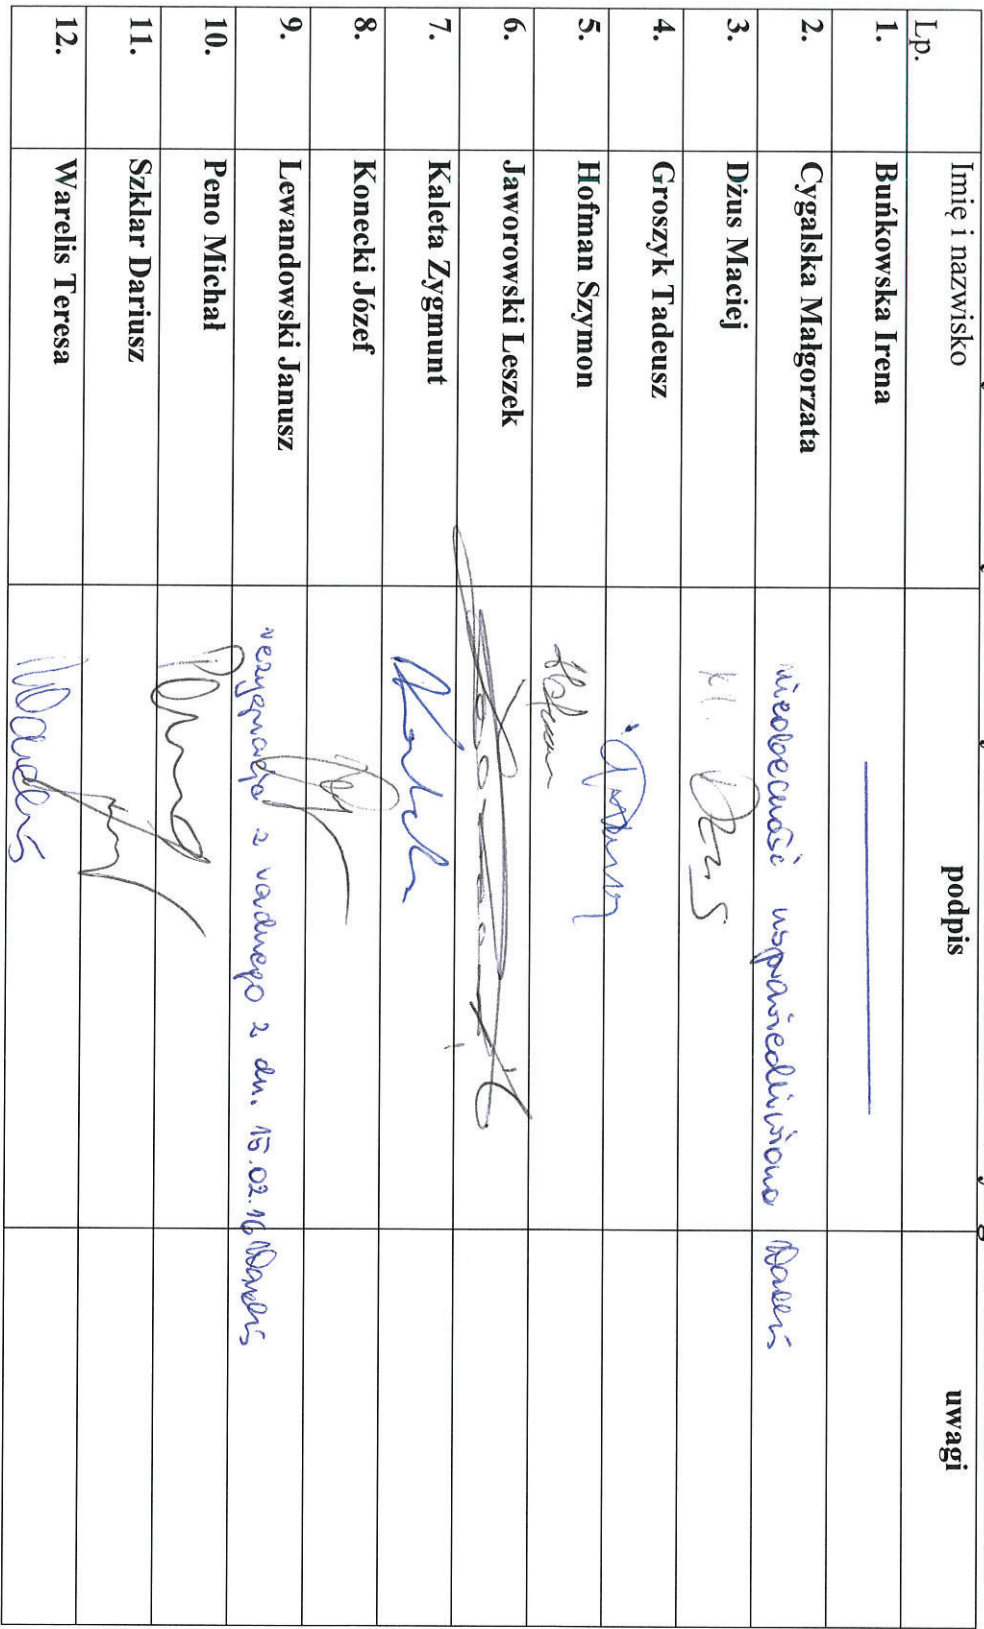 Lp. Imię i nazwisko podpis uwagi
1. Buńkowska Irena
2. Cygalska Małgorzata nieobecność usprawiedliwiona Warelis
3. Dżus Maciej M. Dżus
4. Groszyk Tadeusz
5. Hofman Szymon Hofman
6. Jaworowski Leszek
7. Kaleta Zygmunt Kaleta
8. Konecki Józef
9. Lewandowski Janusz rezygnacja z radnego z dn. 15.02.16 Warelis
10. Peno Michał
11. Szklar Dariusz
12. Warelis Teresa Warelis